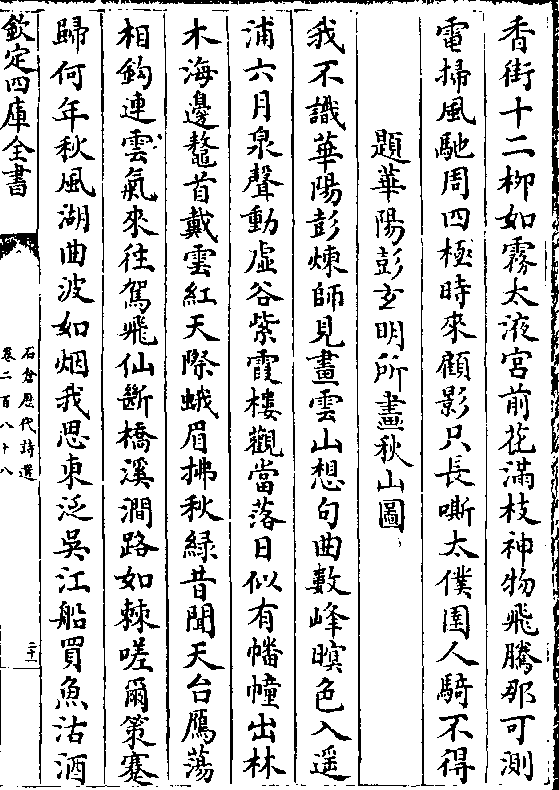 香街十二柳如霧太液宮前花滿枝神物飛騰那可測
電掃風馳周四極時來顧影只長嘶太僕圉人騎不得
題華陽彭玄明所畫秋山圖
我不識華陽彭煉師見畫雲山想句曲數峰暝色入遥
浦六月泉聲動虚谷紫霞樓觀當落日似有幡幢出林
木海邊鼇首戴雲紅天際蛾眉拂秋緑昔聞天台鴈蕩
相鈎連雲氣來往駕飛仙斷橋溪澗路如棘嗟爾策蹇
歸何年秋風湖曲波如烟我思東泛吳江船買魚沽酒
欽定四庫全書
石倉歷代詩選
卷二百八十八
二十一